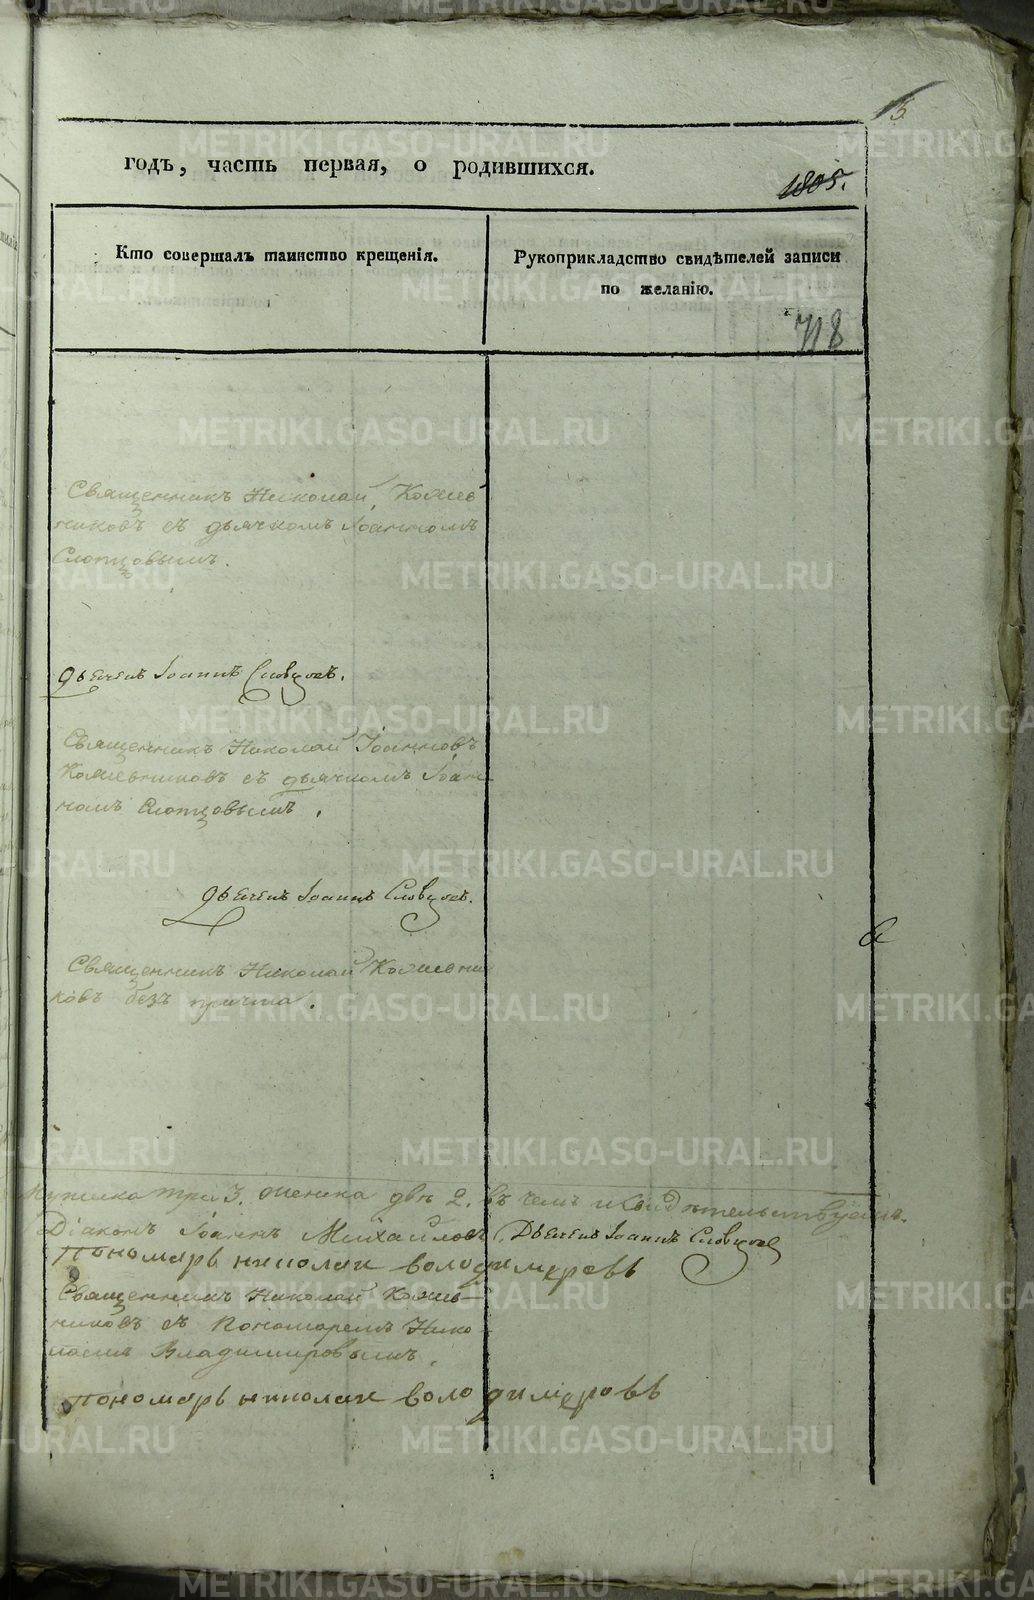 5
годъ, часть первая, о родившихся.
1805.
Кто совершалъ таинство крещенія.
Рукоприкладство свидѣтелей записи
по желанію.
718
Священникъ Николай Кожев
никовъ съ дьячкомъ Іоанномъ
Слотцовымъ.
дьячекъ Іоаннъ Словцовъ.
Священникъ Николай Іоанновъ
Кожевниковъ съ дьячкомъ Іоан
номъ Слотцовымъ.
дьячекъ Іоаннъ Словцовъ.
Священникъ Николай Кожевни
ковъ безъ причта.
Мужеска три 3. женска двѣ 2. въ чемъ и свидѣтельствуемъ.
Діаконъ Іоаннъ Михайловъ. Дьячекъ Іоаннъ Словцовъ
Пономарь николаи володимеровъ
Священникъ Николай Кожев-
никовъ съ Пономаремъ Нико-
лаемъ Владимировымъ.
пономарь николаи володимеровъ
METRIKI.GASO-URAL.RU